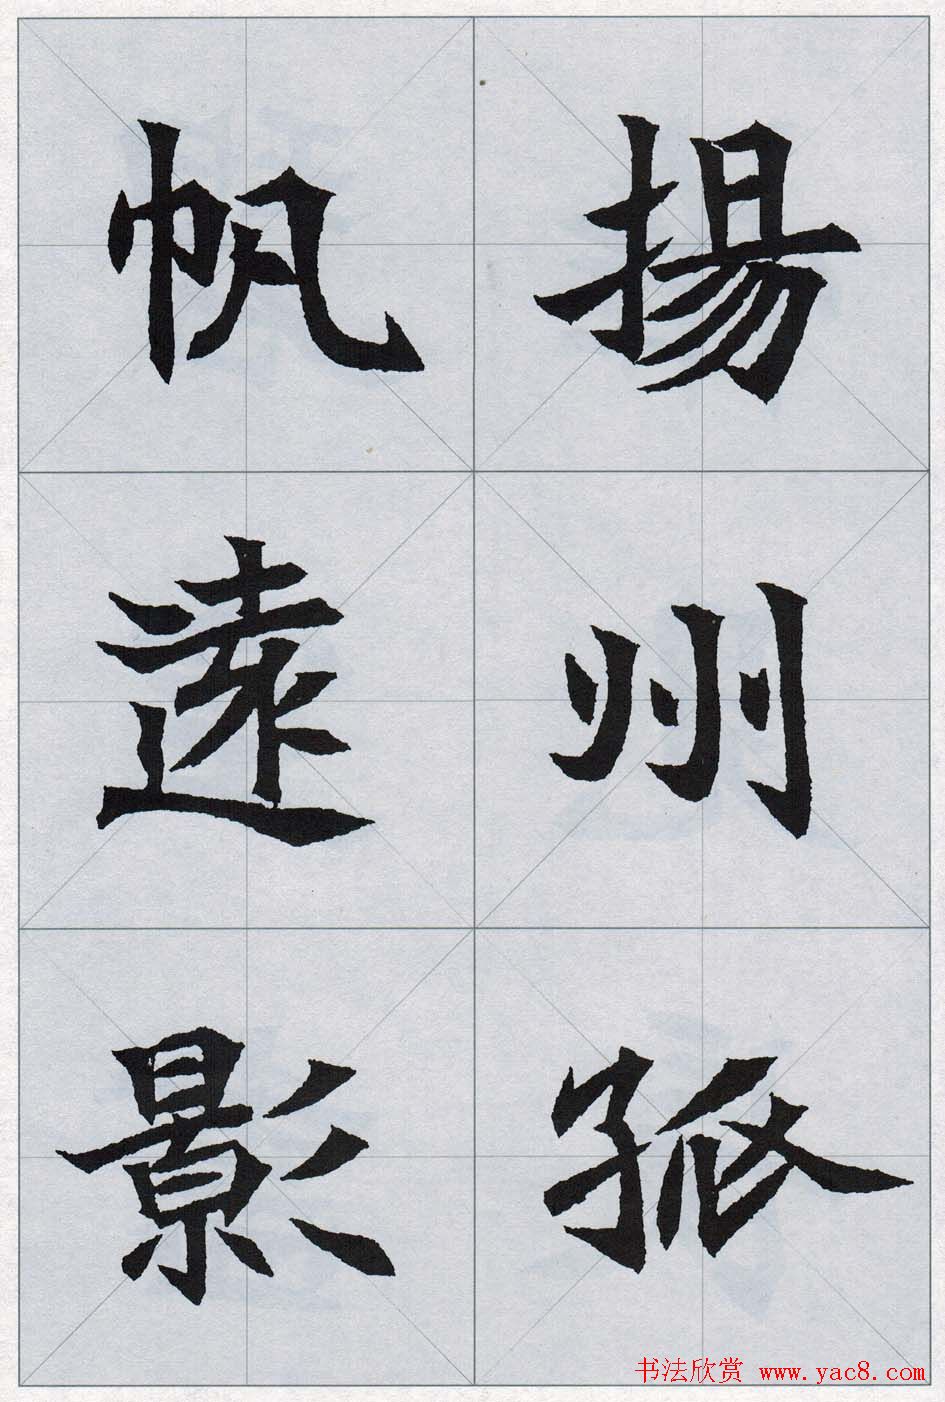 揚州孤
帆遠影
书法欣赏 www.yac8.com